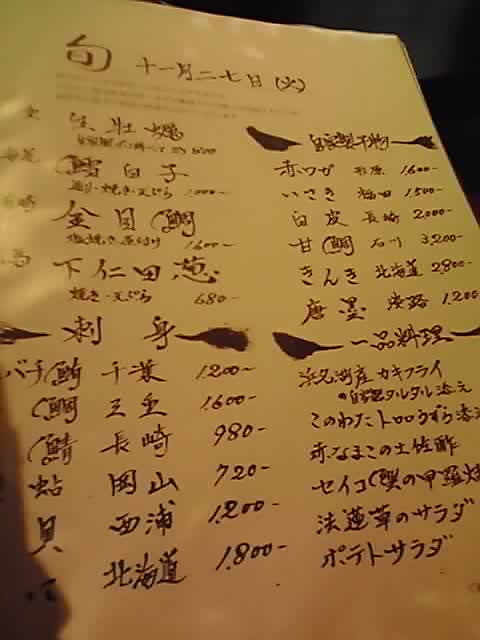 旬 十一月二七日(火)
生牡蠣
800
鱈白子
焼き・天ぷら 1,000-
金目鯛
塩焼き・煮付け 1,600-
下仁田葱
焼き・天ぷら 680-
刺身
バチ鮪 千葉 1,200-
鯛 三重 1,600-
鯖 長崎 980-
蛤 岡山 720-
貝 西浦 1,200-
北海道 1,800-
自家製干物
赤ワガ 1,600-
いさき 1,500-
白皮 長崎 2,000-
甘鯛 石川 3,200-
きんき 北海道 2,800-
唐墨 淡路 1,200
一品料理
浜名湖産カキフライ
の自家製タルタル添え
このわたトロロうずら添え
赤なまこの土佐酢
セイコ蟹の甲羅焼
法蓮草のサラダ
ポテトサラダ